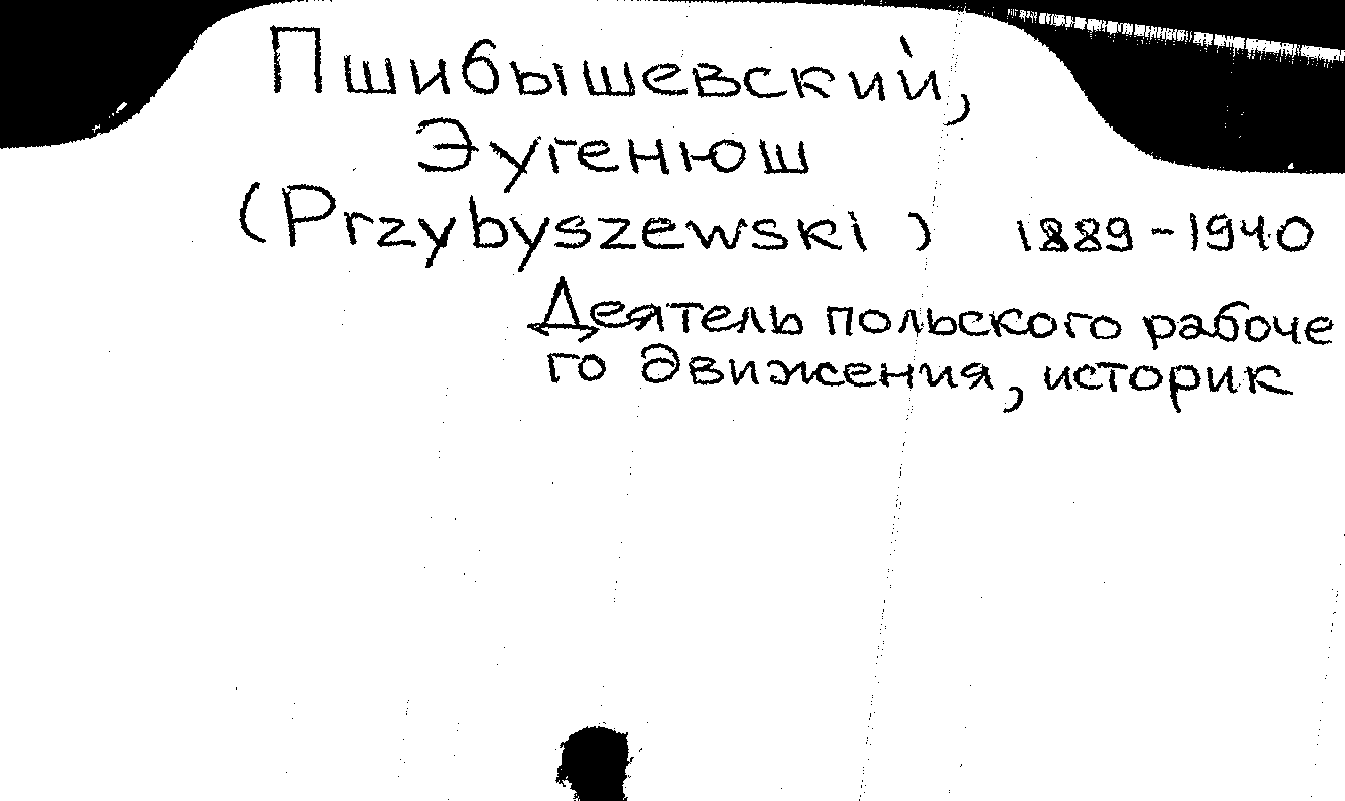 Пшибышевский,
Эугенюш
(Przybyszewski) 1889-1940
Деятель польского рабоче
го движения, историк